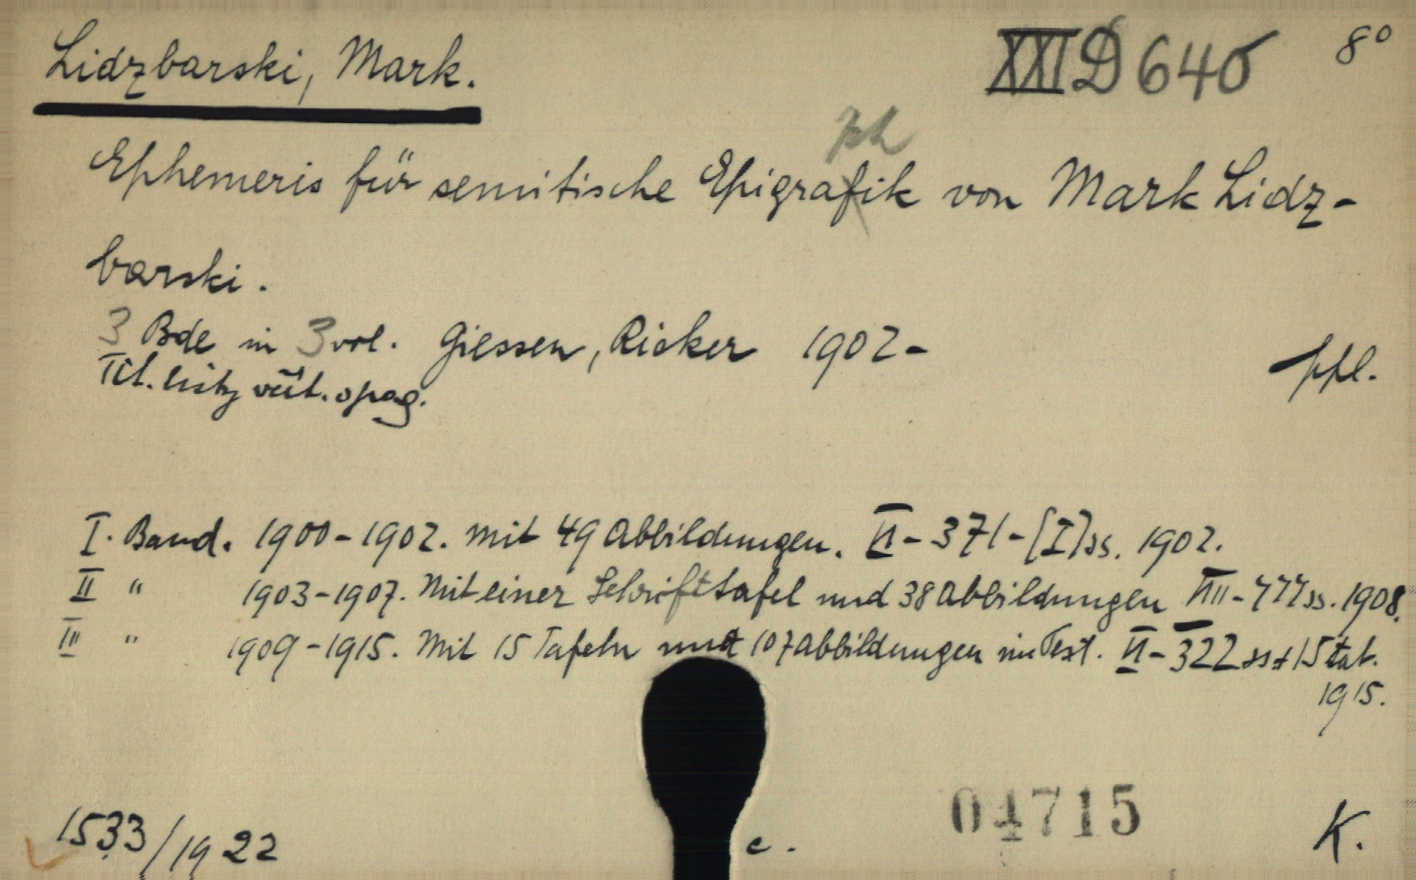 Lidzbarski, Mark. XXI D 640 8º
ph
Ephemeris für semitische Epigrafik von Mark Lidz-
barski.
3 Bde in 3 vol. Giessen, Ricker 1902-
ppl.
Tit.
I. Band. 1900-1902. Mit 49 Abbildungen. VI-371-[I] ss. 1902.
II " 1903-1907. Mit einer Schrifttafel und 38 Abbildungen VIII-444 ss. 1908.
III " 1909-1915. Mit 15 Tafeln und 107 Abbildungen im Text. VI-322 ss + 15 tab.
1915.
1533/1922 c. 04715 K.